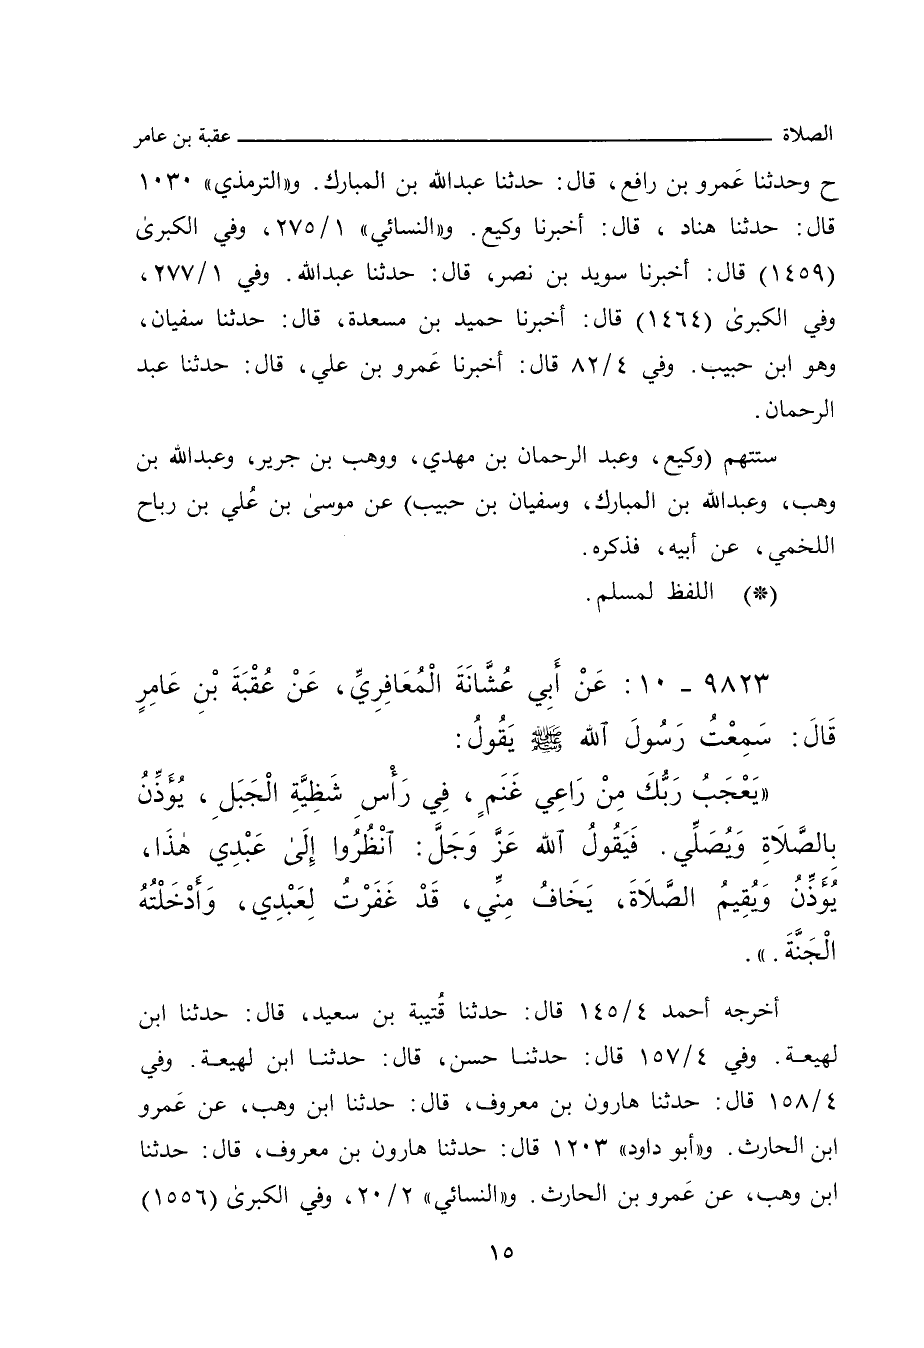 الصلاة ــــــــــــــــ عقبة بن عامر
ح وحدثنا عَمرو بن رافع، قال: حدثنا عبدالله بن المبارك. و«الترمذي» ١٠٣٠
قال: حدثنا هناد ، قال: أخبرنا وكيع. و«النسائي» ٢٧٥/١، وفي الكبرىٰ
(١٤٥٩) قال: أخبرنا سويد بن نصر، قال: حدثنا عبدالله. وفي ٢٧٧/١،
وفي الكبرىٰ (١٤٦٤) قال: أخبرنا حميد بن مسعدة، قال: حدثنا سفيان،
وهو ابن حبيب. وفي ٨٢/٤ قال: أخبرنا عَمرو بن علي، قال: حدثنا عبد
الرحمان.
ستتهم (وكيع، وعبد الرحمان بن مهدي، ووهب بن جرير، وعبدالله بن
وهب، وعبدالله بن المبارك، وسفيان بن حبيب) عن موسىٰ بن عُلي بن رباح
اللخمي، عن أبيه، فذكره.
(*) اللفظ لمسلم.
٩٨٢٣ - ١٠: عَنْ أَبِي عُشَّانَةَ الْمُعَافِرِيِّ، عَنْ عُقْبَةَ بْنِ عَامِرٍ
قَالَ: سَمِعْتُ رَسُولَ ٱلله ﷺ يَقُولُ:
«يَعْجَبُ رَبُّكَ مِنْ رَاعِي غَنَمٍ، فِي رَأْسِ شَظِيَّةِ الْجَبَلِ، يُؤَذِّنُ
بِالصَّلَاةِ وَيُصَلِّي. فَيَقُولُ ٱلله عَزَّ وَجَلَّ: ٱنْظُرُوا إِلَىٰ عَبْدِي هٰذَا،
يُؤَذِّنُ وَيُقِيمُ الصَّلَاةَ، يَخَافُ مِنِّي، قَدْ غَفَرْتُ لِعَبْدِي، وَأَدْخَلْتُهُ
الْجَنَّةَ.».
أخرجه أحمد ١٤٥/٤ قال: حدثنا قُتيبة بن سعيد، قال: حدثنا ابن
لهيعة. وفي ١٥٧/٤ قال: حدثنا حسن، قال: حدثنا ابن لهيعة. وفي
١٥٨/٤ قال: حدثنا هارون بن معروف، قال: حدثنا ابن وهب، عن عَمرو
ابن الحارث. و«أبو داود» ١٢٠٣ قال: حدثنا هارون بن معروف، قال: حدثنا
ابن وهب، عن عَمرو بن الحارث. و«النسائي» ٢٠/٢، وفي الكبرىٰ (١٥٥٦)
١٥